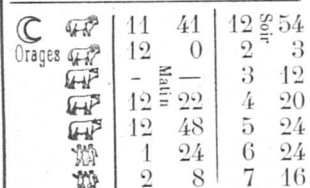 11 41 12 54
Orages 12 0 2 3
- — 3 12
12 22 4 20
12 48 5 24
1 24 6 24
2 8 7 16
Matin
Soir